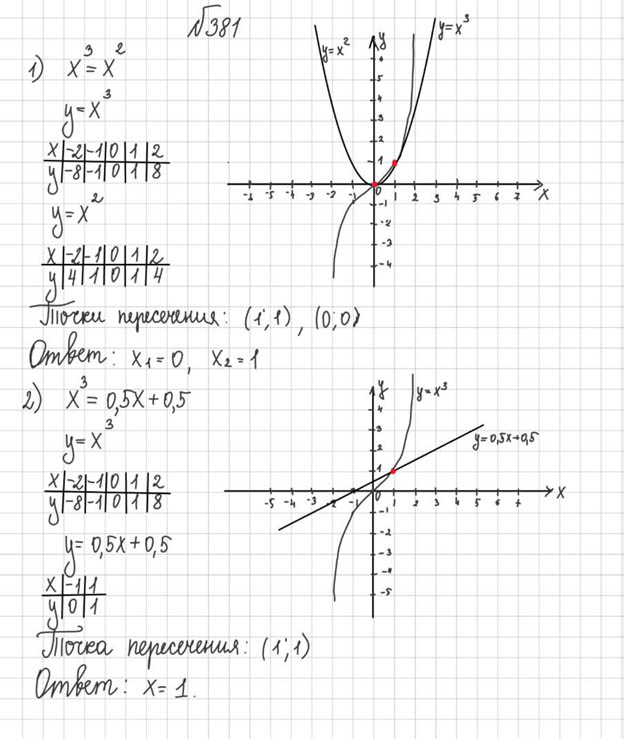 №381
1) x³ = x²
y = x³
x | -2 | -1 | 0 | 1 | 2
y | -8 | -1 | 0 | 1 | 8
y = x²
x | -2 | -1 | 0 | 1 | 2
y | 4 | 1 | 0 | 1 | 4
y=x²
y
y=x³
5
4
3
2
1
-6 -5 -4 -3 -2 -1 0 1 2 3 4 5 6 7 x
-1
-2
-3
-4
Точки пересечения: (1;1), (0;0)
Ответ: x₁ = 0, x₂ = 1
2) x³ = 0,5x + 0,5
y = x³
x | -2 | -1 | 0 | 1 | 2
y | -8 | -1 | 0 | 1 | 8
y = 0,5x + 0,5
x | -1 | 1
y | 0 | 1
y
y=x³
y=0,5x+0,5
4
3
2
1
-5 -4 -3 -2 -1 0 1 2 3 4 5 6 7 x
-1
-2
-3
-4
-5
Точка пересечения: (1;1)
Ответ: x = 1.